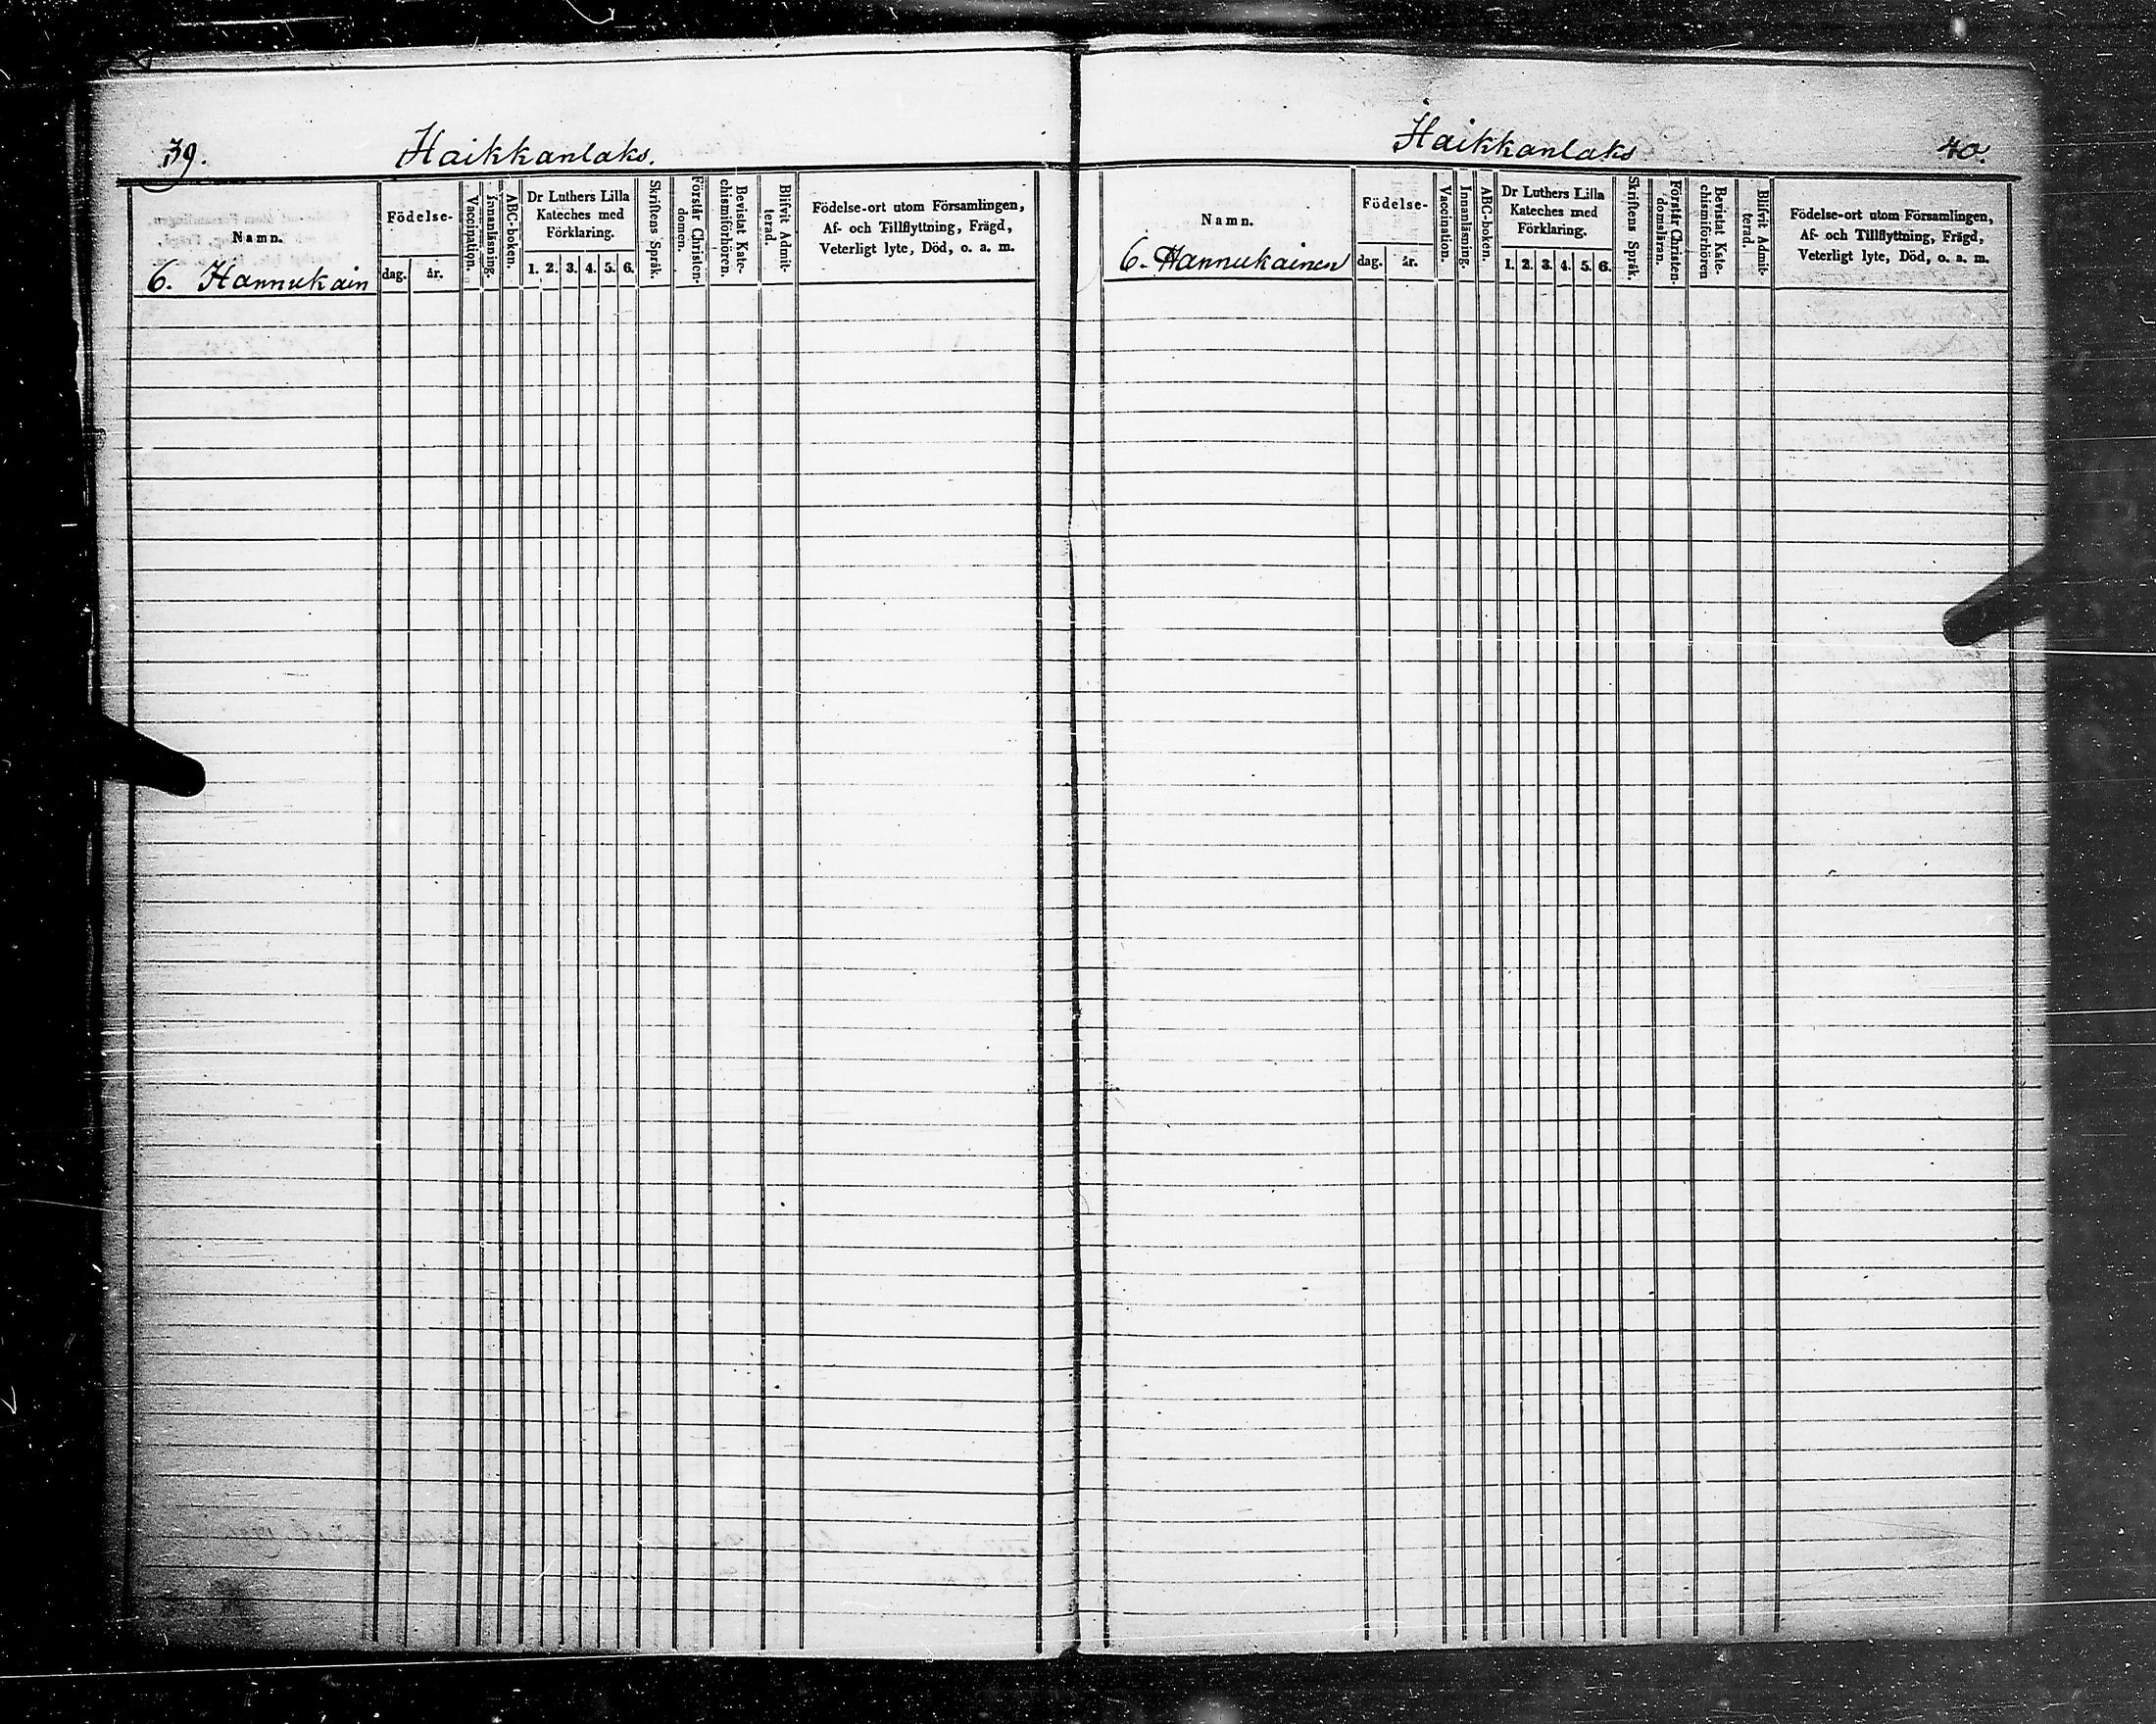 39.
Haikkanlaks.
Namn.
6. Hannukain
Födelse-
dag.
år.
Vaccination.
Innanläsning.
ABC-boken.
Dr Luthers Lilla
Kateches med
Förklaring.
1. 2. 3. 4. 5. 6.
Skriftens Språk.
Förstår Christen-
domen.
Bevistat Kate-
chismiförhören.
Blifvit Admit-
terad.
Födelse-ort utom Församlingen,
Af- och Tillflyttning, Frägd,
Veterligt lyte, Död, o. a. m.
Haikkanlaks
40.
Namn.
6. Hannukainen
Födelse-
dag.
år.
Vaccination.
Innanläsning.
ABC-boken.
Dr Luthers Lilla
Kateches med
Förklaring.
1. 2. 3. 4. 5. 6.
Skriftens Språk.
Förstår Christen-
domsläran.
Bevistat Kate-
chismiförhören
Blifvit Admit-
terad.
Födelse-ort utom Församlingen,
Af- och Tillflyttning, Frägd,
Veterligt lyte, Död, o. a. m.